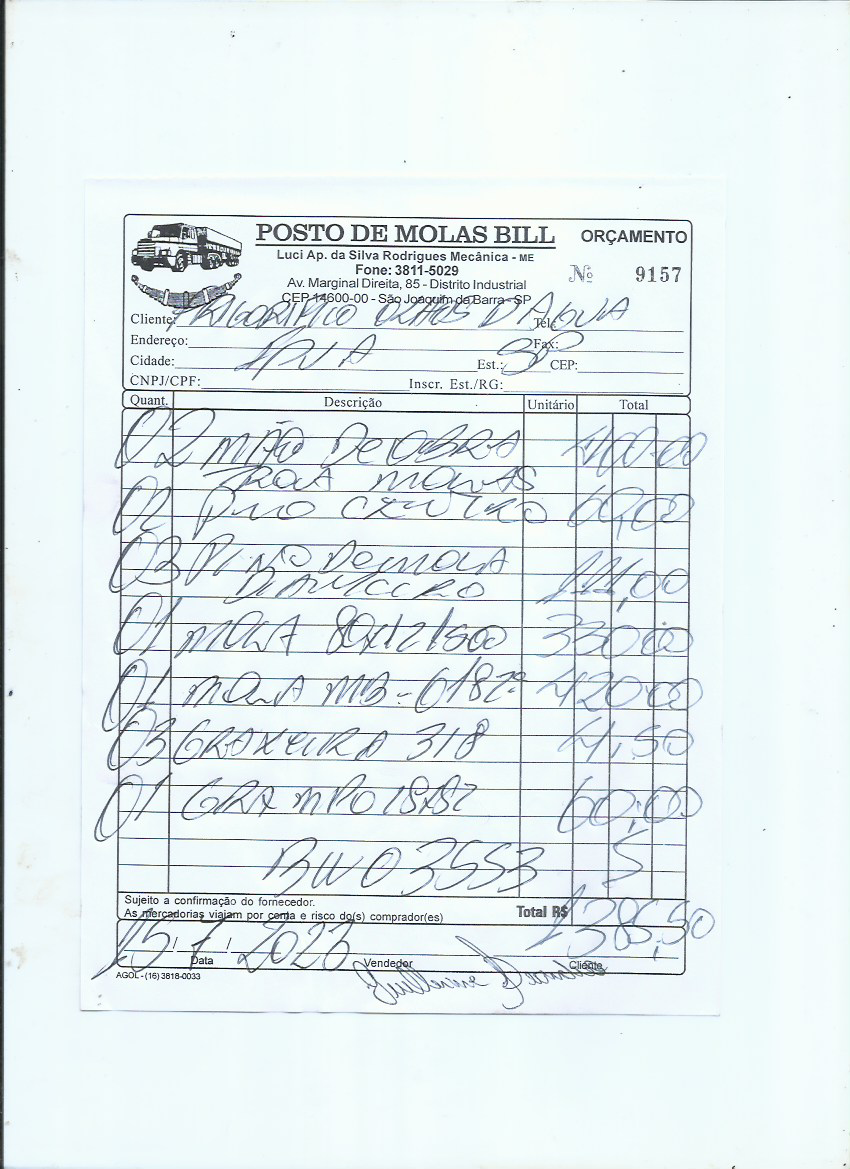 POSTO DE MOLAS BILL
ORÇAMENTO
Luci Ap. da Silva Rodrigues Mecânica - ME
Fone: 3811-5029
Nº 9157
Av. Marginal Direita, 85 - Distrito Industrial
CEP 14600-00 - São Joaquim da Barra - SP
Cliente: FRIGORIFICO OLHOS D'AGUA Tel.:
Endereço: Fax:
Cidade: IPUA Est.: SP CEP:
CNPJ/CPF: Inscr. Est./RG:
Quant. Descrição Unitário Total
02 MÃO DE OBRA 400,00
TROCA MOLAS
02 PINO CENTRO 60,00
03 PINO DE MOLA 111,00
DIANTEIRO
01 MOLA 80X12/1500 330,00
01 MOLA MB - 618 2ª 420,00
03 GRAXEIRA 3/8 4,50
01 GRAMPO 18X82 60,00
BWO 3553
Sujeito a confirmação do fornecedor.
As mercadorias viajam por conta e risco do(s) comprador(es)
Total R$ 1385,50
15/7/2023
Data Vendedor Cliente
AGOL - (16) 3818-0033